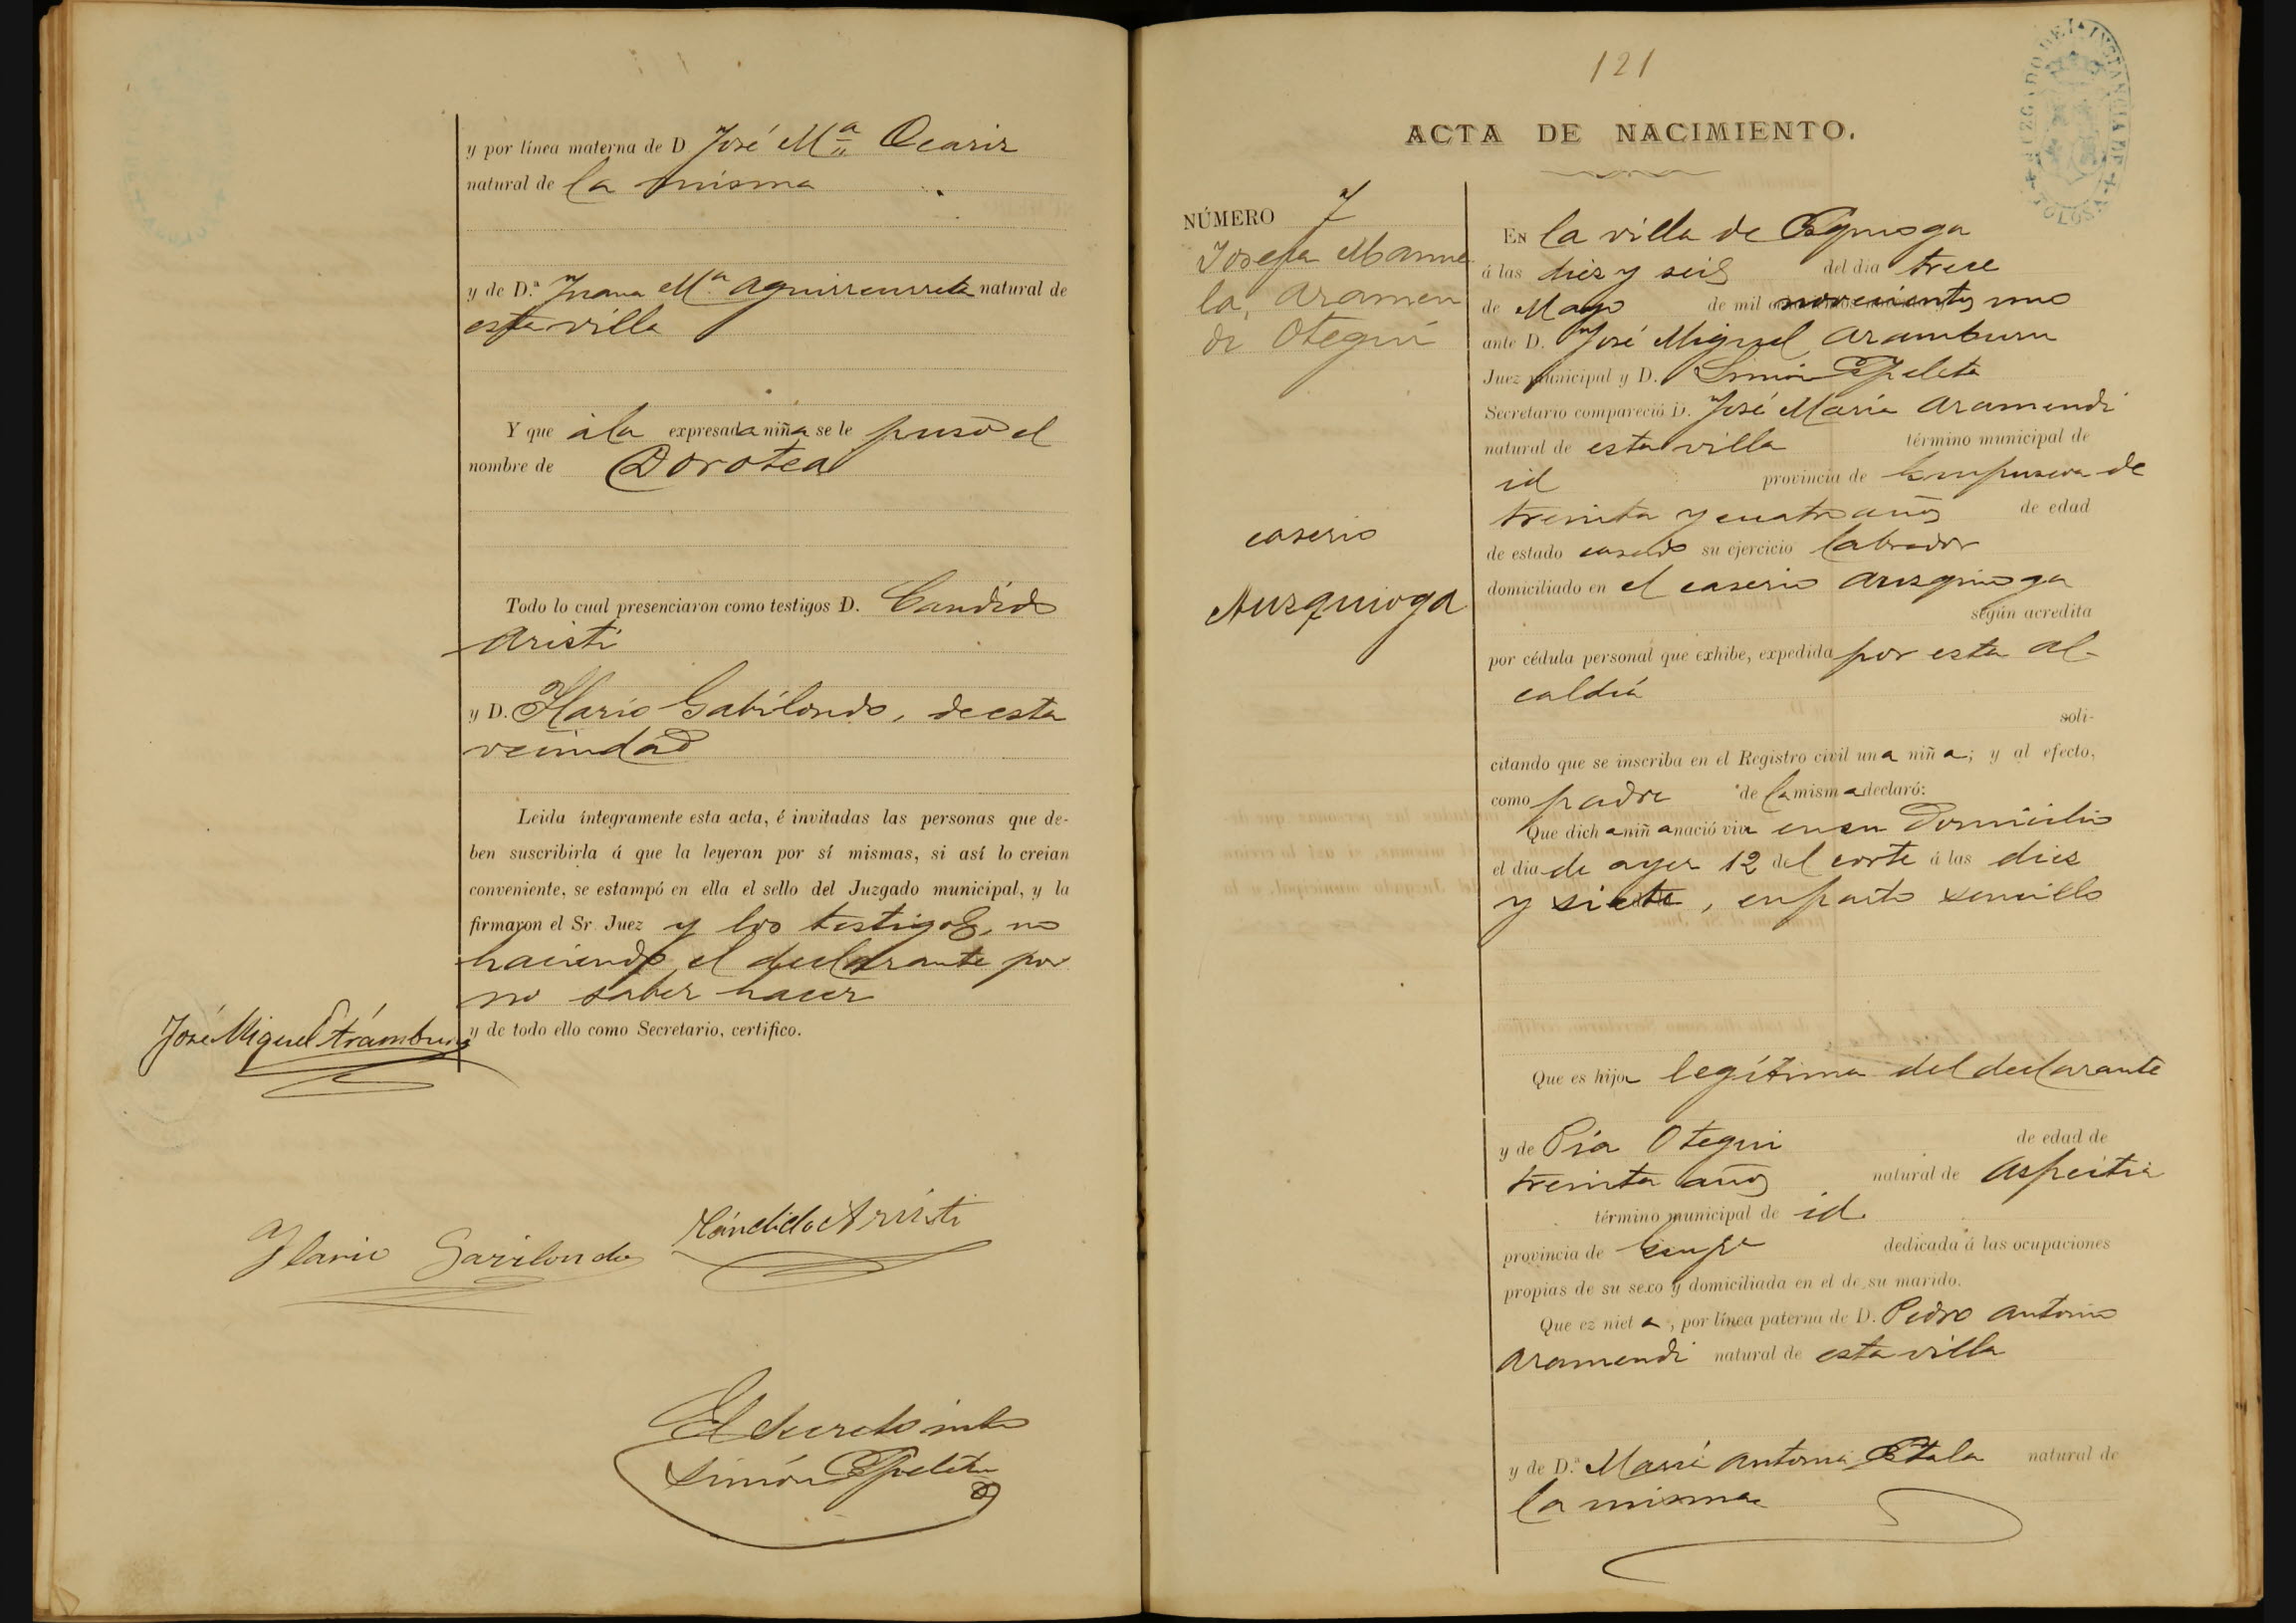 y por línea materna de D José Mª Ocariz
natural de la misma
y de D.ª Juana Mª Aguirreurreta natural de
esta villa
Y que á la expresada niña se le puso el
nombre de Dorotea
Todo lo cual presenciaron como testigos D. Candido
Aristi
y D. Ylario Gabilondo, de esta
vecindad
Leida íntegramente esta acta, é invitadas las personas que de-
ben suscribirla á que la leyeran por sí mismas, si así lo creian
conveniente, se estampó en ella el sello del Juzgado municipal, y la
firmaron el Sr. Juez y los testigos, no
haciendo el declarante por
no saber hacer
y de todo ello como Secretario, certifico.
José Miguel Aramburu
Cándido Aristi
Ylario Gavilondo
El Secreto into
Simón Epelde
121
ACTA DE NACIMIENTO.
JUZGADO DE 1ª INSTANCIA DE TOLOSA
NÚMERO 7
Josefa Manue
la, Aramen
di Otegui
caserio
Auzquioga
En la villa de Ezquioga
á las diez y seis del dia trece
de Mayo de mil novecientos uno
ante D. José Miguel Aramburu
Juez municipal y D. Simón
Secretario compareció D. José María Aramendi
natural de esta villa término municipal de
id provincia de Guipuzcoa de
treinta y cuatro años de edad
de estado casado su ejercicio labrador
domiciliado en el caserio Auzquioga
según acredita
por cédula personal que exhibe, expedida por esta al-
caldiá
soli-
citando que se inscriba en el Registro civil una niña; y al efecto,
como padre de la misma declaró:
Que dicha niña nació viva en su domicilio
el dia de ayer 12 del corte á las diez
y siete, en parto sencillo
Que es hija legítima del declarante
y de Pia Otegui de edad de
treinta años natural de Aspeitia
término municipal de id
provincia de Guipª dedicada á las ocupaciones
propias de su sexo y domiciliada en el de su marido.
Que ez nieta, por línea paterna de D. Pedro Antonio
Aramendi natural de esta villa
y de D.ª Mariá Antonia natural de
la misma